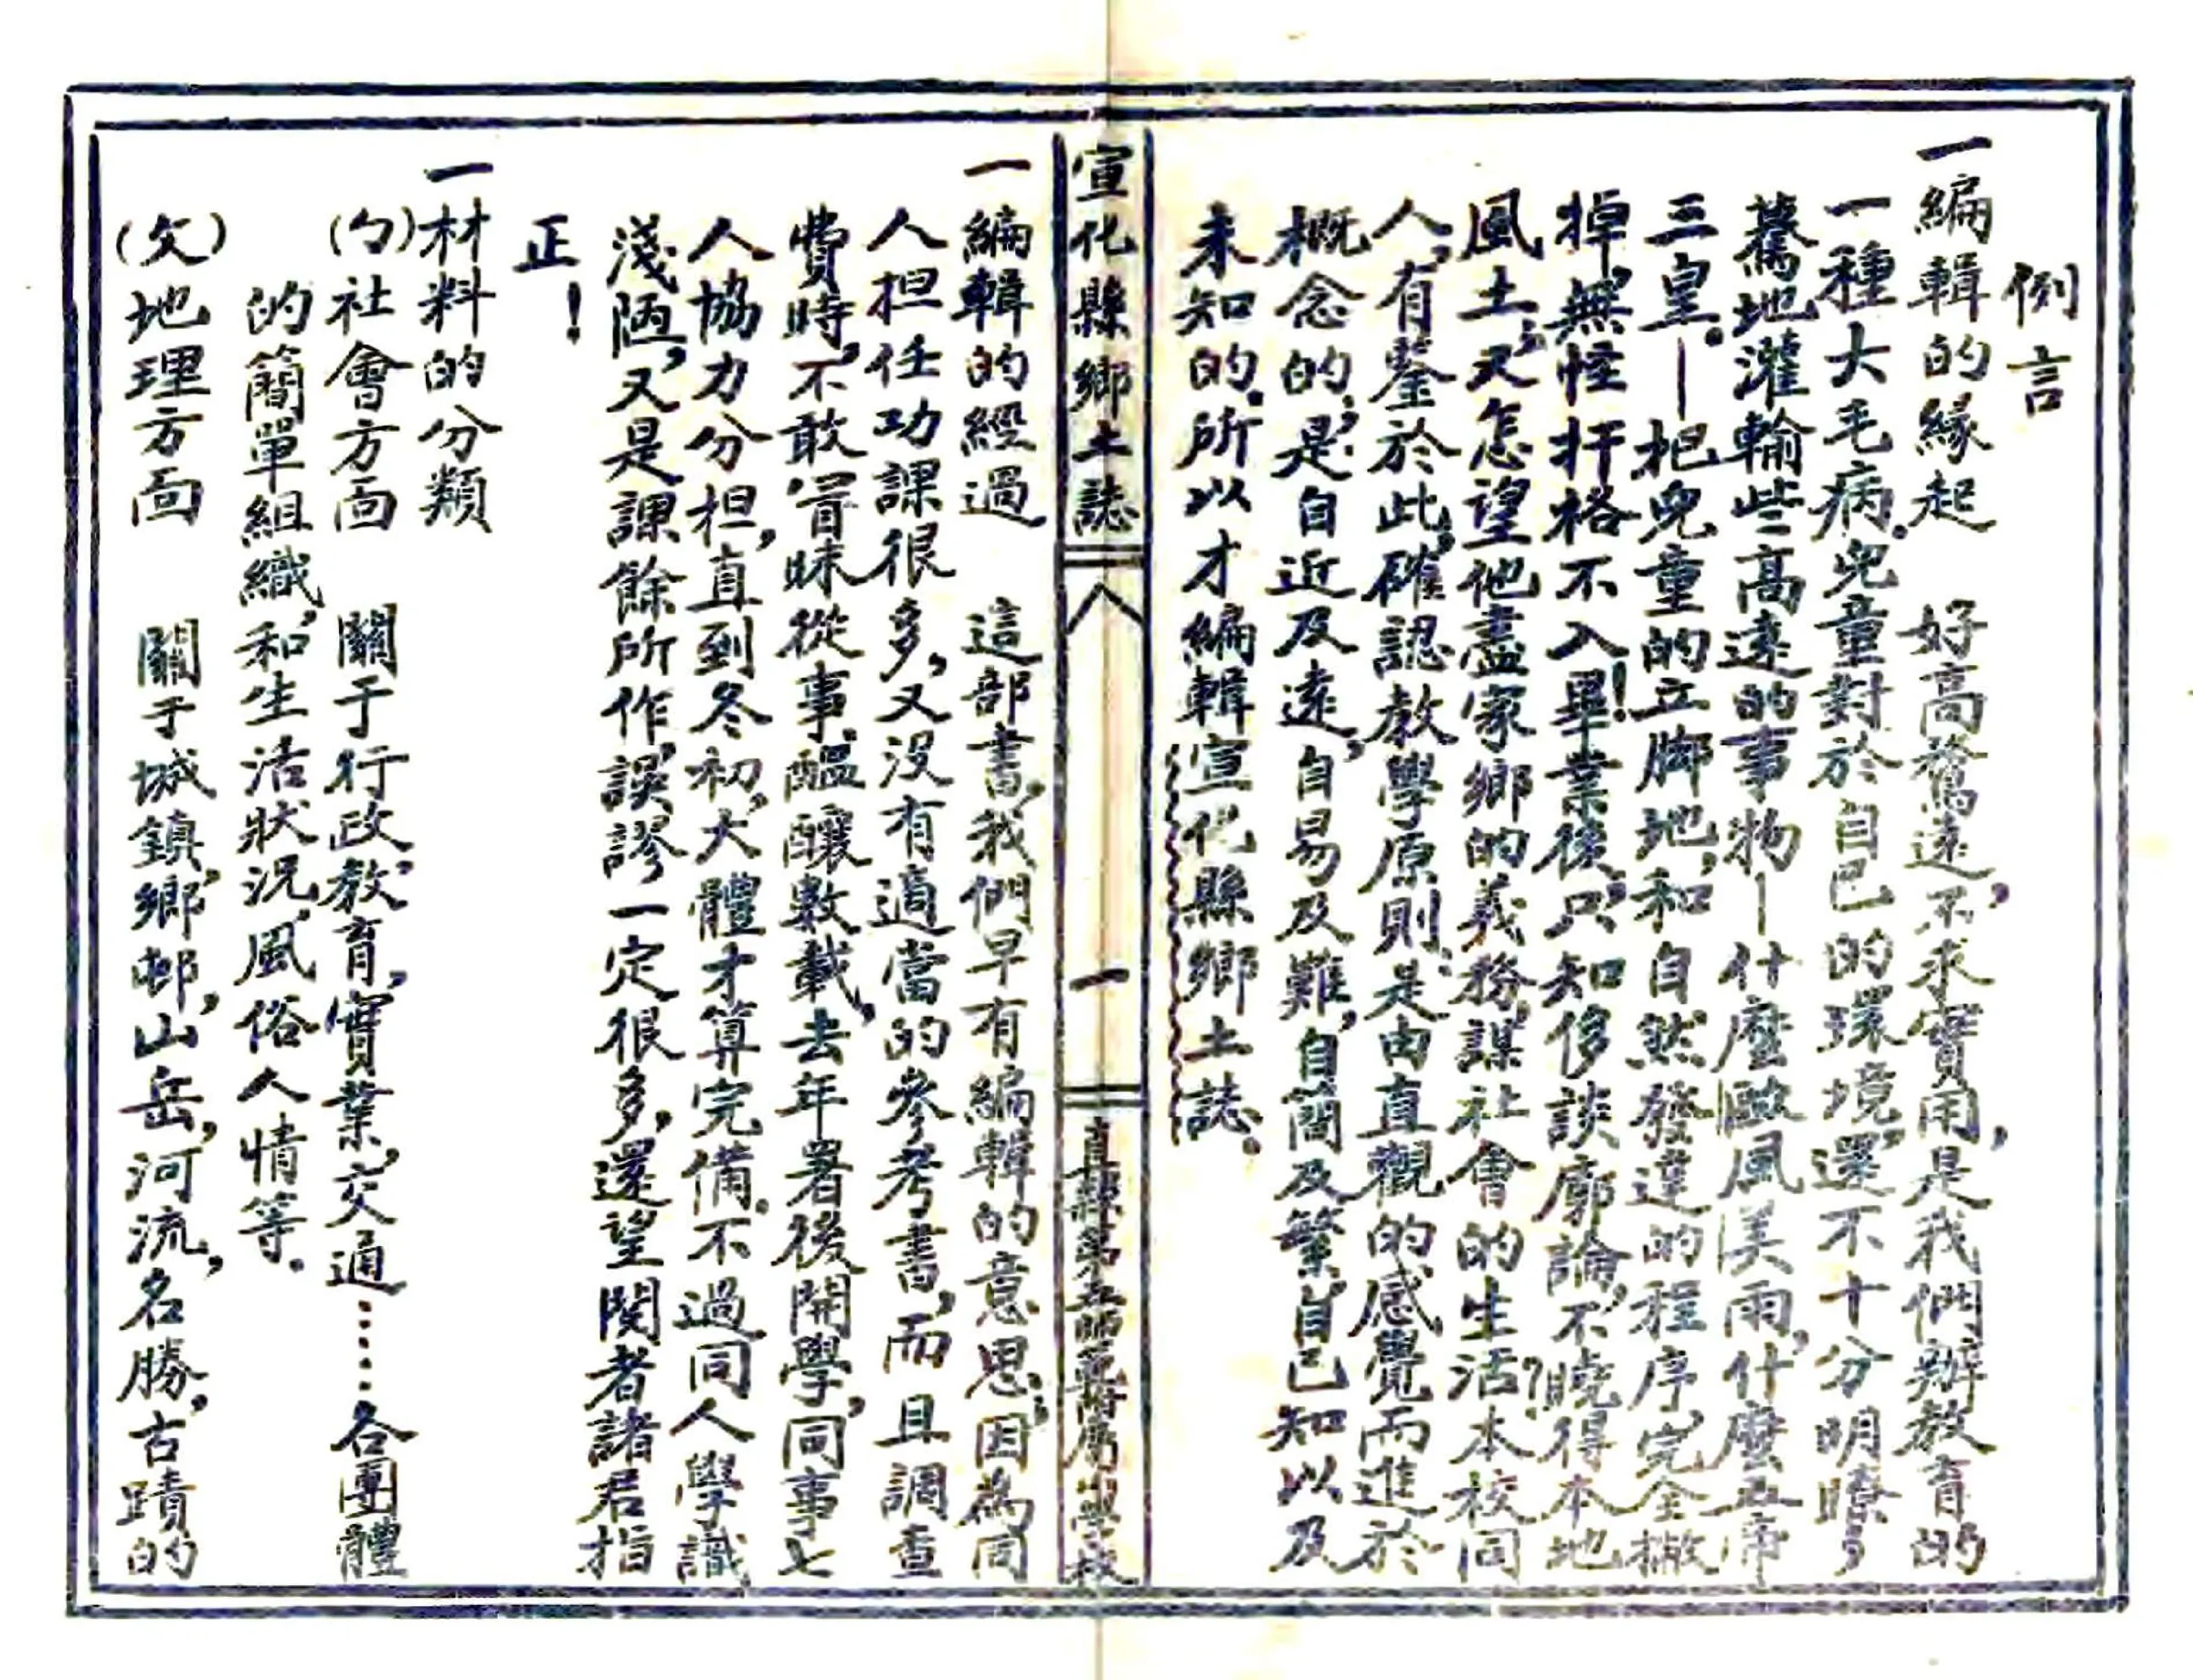 例言
一編輯的緣起　好高騖遠,不求實用,是我們辦教育的
一種大毛病.兒童對於自己的環境,還不十分明瞭,
驀地灌輸些高遠的事物—什麼歐風美雨,什麼五帝
三皇.—把兒童的立脚地,和自然發達的程序,完全撇
掉,無怪扞格不入!畢業後,只知侈談廓論,不曉得本地
風土;又怎望他盡家鄉的義務,謀社會的生活?本校同
人,有鑒於此,確認教學原則:是由直觀的,感覺而進於
概念的;是自近及遠,自易及難,自簡及繁,自己知以及
未知的.所以才編輯宣化縣鄉土誌.
宣化縣鄉土誌
一
直隸第五師範附屬小學校
一編輯的經過　這部書,我們早有編輯的意思;因為同
人担任功課很多,又沒有適當的參考書,而且調查
費時,不敢冒昧從事.醞釀數載,去年署後開學,同事七
人協力分担,直到冬初,大體才算完備.不過同人學識
淺陋,又是課餘所作,誤謬一定很多,還望閱者諸君指
正!
一材料的分類
(ㄅ)社會方面　關于行政,教育,實業,交通……各團體
的簡單組織,和生活狀況,風俗人情等.
(ㄆ)地理方面　關于城鎮,鄉邨,山岳,河流,名勝,古蹟的